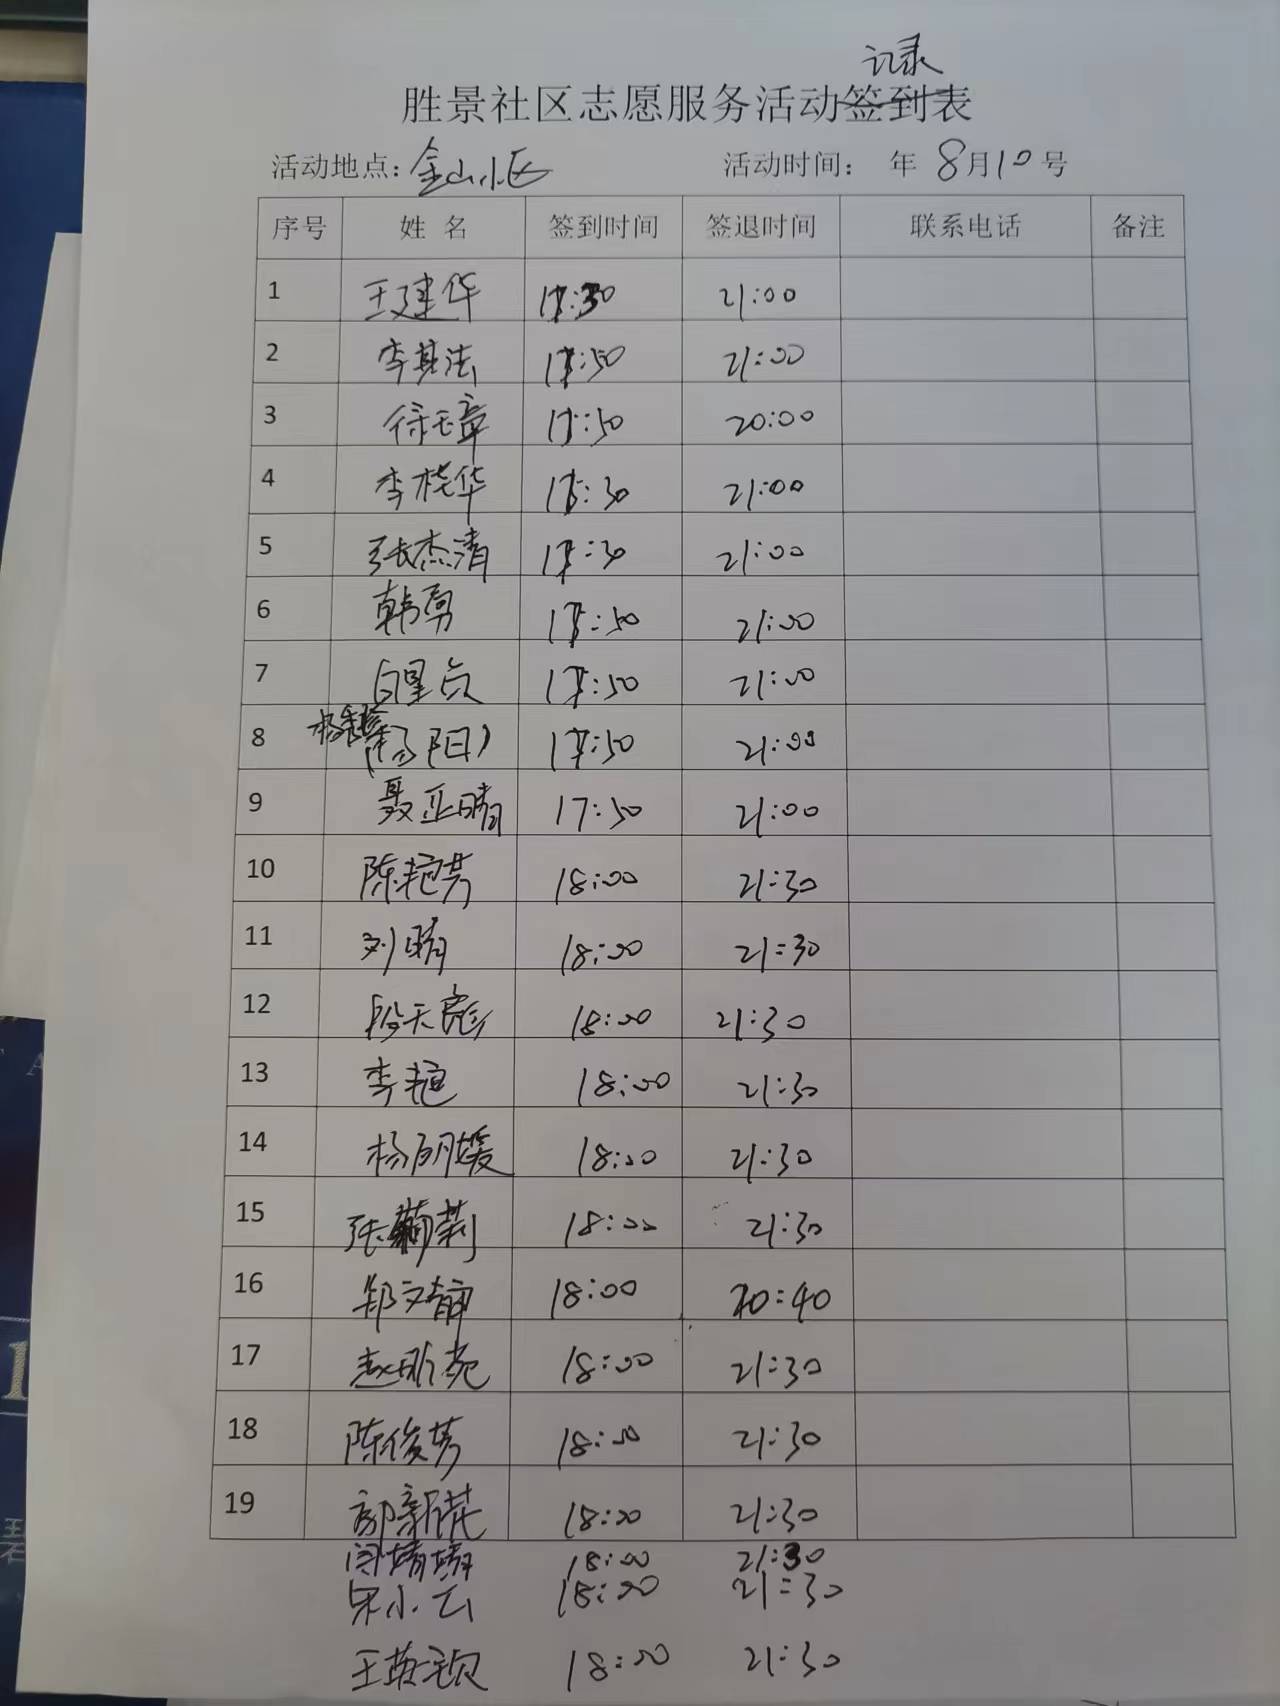 记录
胜景社区志愿服务活动签到表
活动地点：金山小区 活动时间： 年 8月10号
序号 姓名 签到时间 签退时间 联系电话 备注
1 王建华 17:30 21:00
2 李其法 17:50 21:00
3 徐玉章 17:50 20:00
4 李桂华 17:30 21:00
5 张杰清 17:30 21:00
6 韩勇 17:50 21:00
7 白星贞 17:50 21:00
8 (杨阳) 17:50 21:00
9 聂亚晴 17:50 21:00
10 陈艳芳 18:00 21:30
11 刘晴 18:00 21:30
12 段天彪 18:00 21:30
13 李艳 18:00 21:30
14 杨明媛 18:00 21:30
15 张莉 18:00 21:30
16 郑文静 18:00 20:40
17 赵明苑 18:00 21:30
18 陈俊芳 18:00 21:30
19 郭新花 18:00 21:30
闫婧婧 18:00 21:30
宋小云 18:00 21:30
王英 18:00 21:30